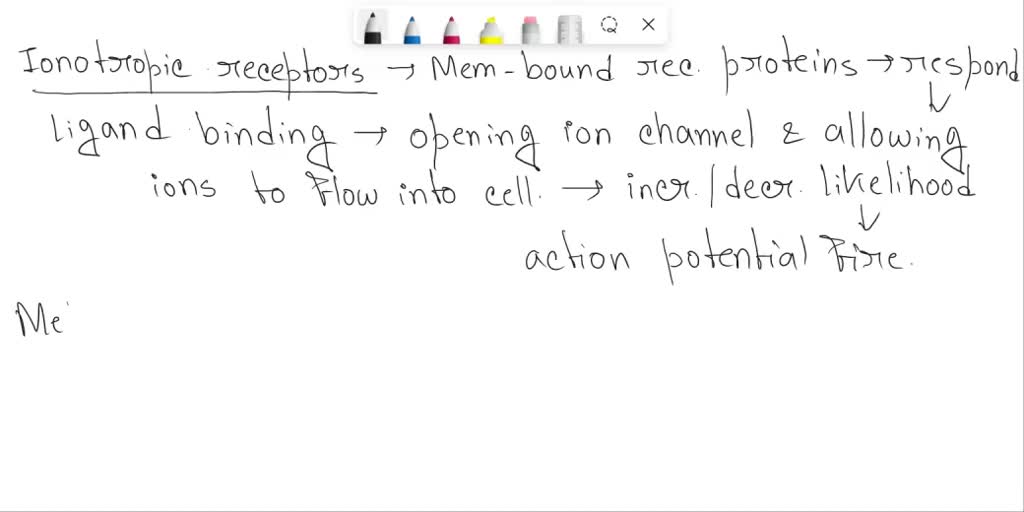 Ionotropic receptors → Mem-bound rec. proteins → respond
↓
ligand binding → opening ion channel & allowing
ions to flow into cell. → incr./decr. likelihood
↓
action potential fire.
Me